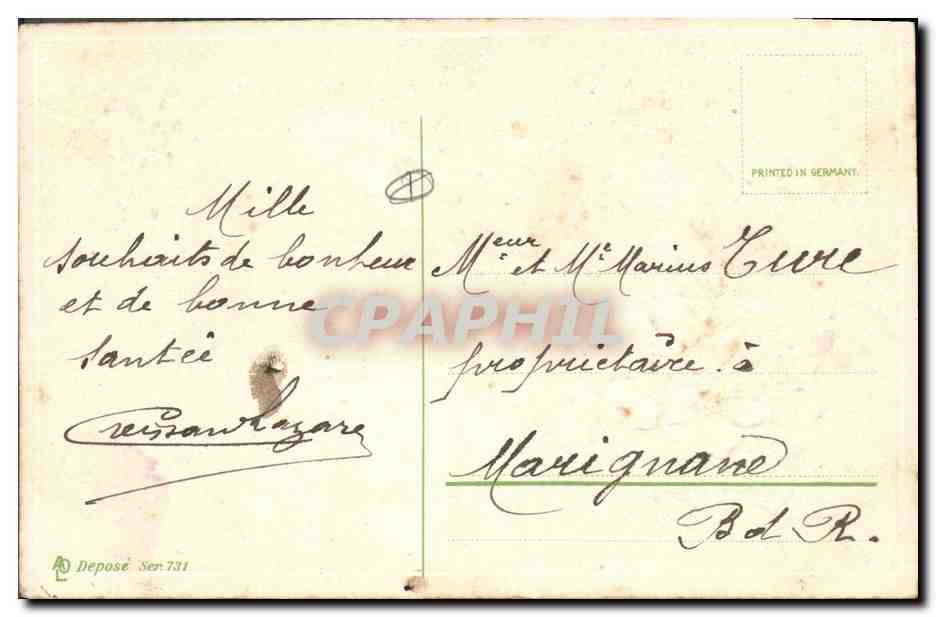 PRINTED IN GERMANY.
Mille
souhaits de bonheur
et de bonne
santée
Lazare
Meur et Me Marius Ture
propriétaire à
Marignane
B d R.
CPAPHIL
ALO Deposé Ser. 731